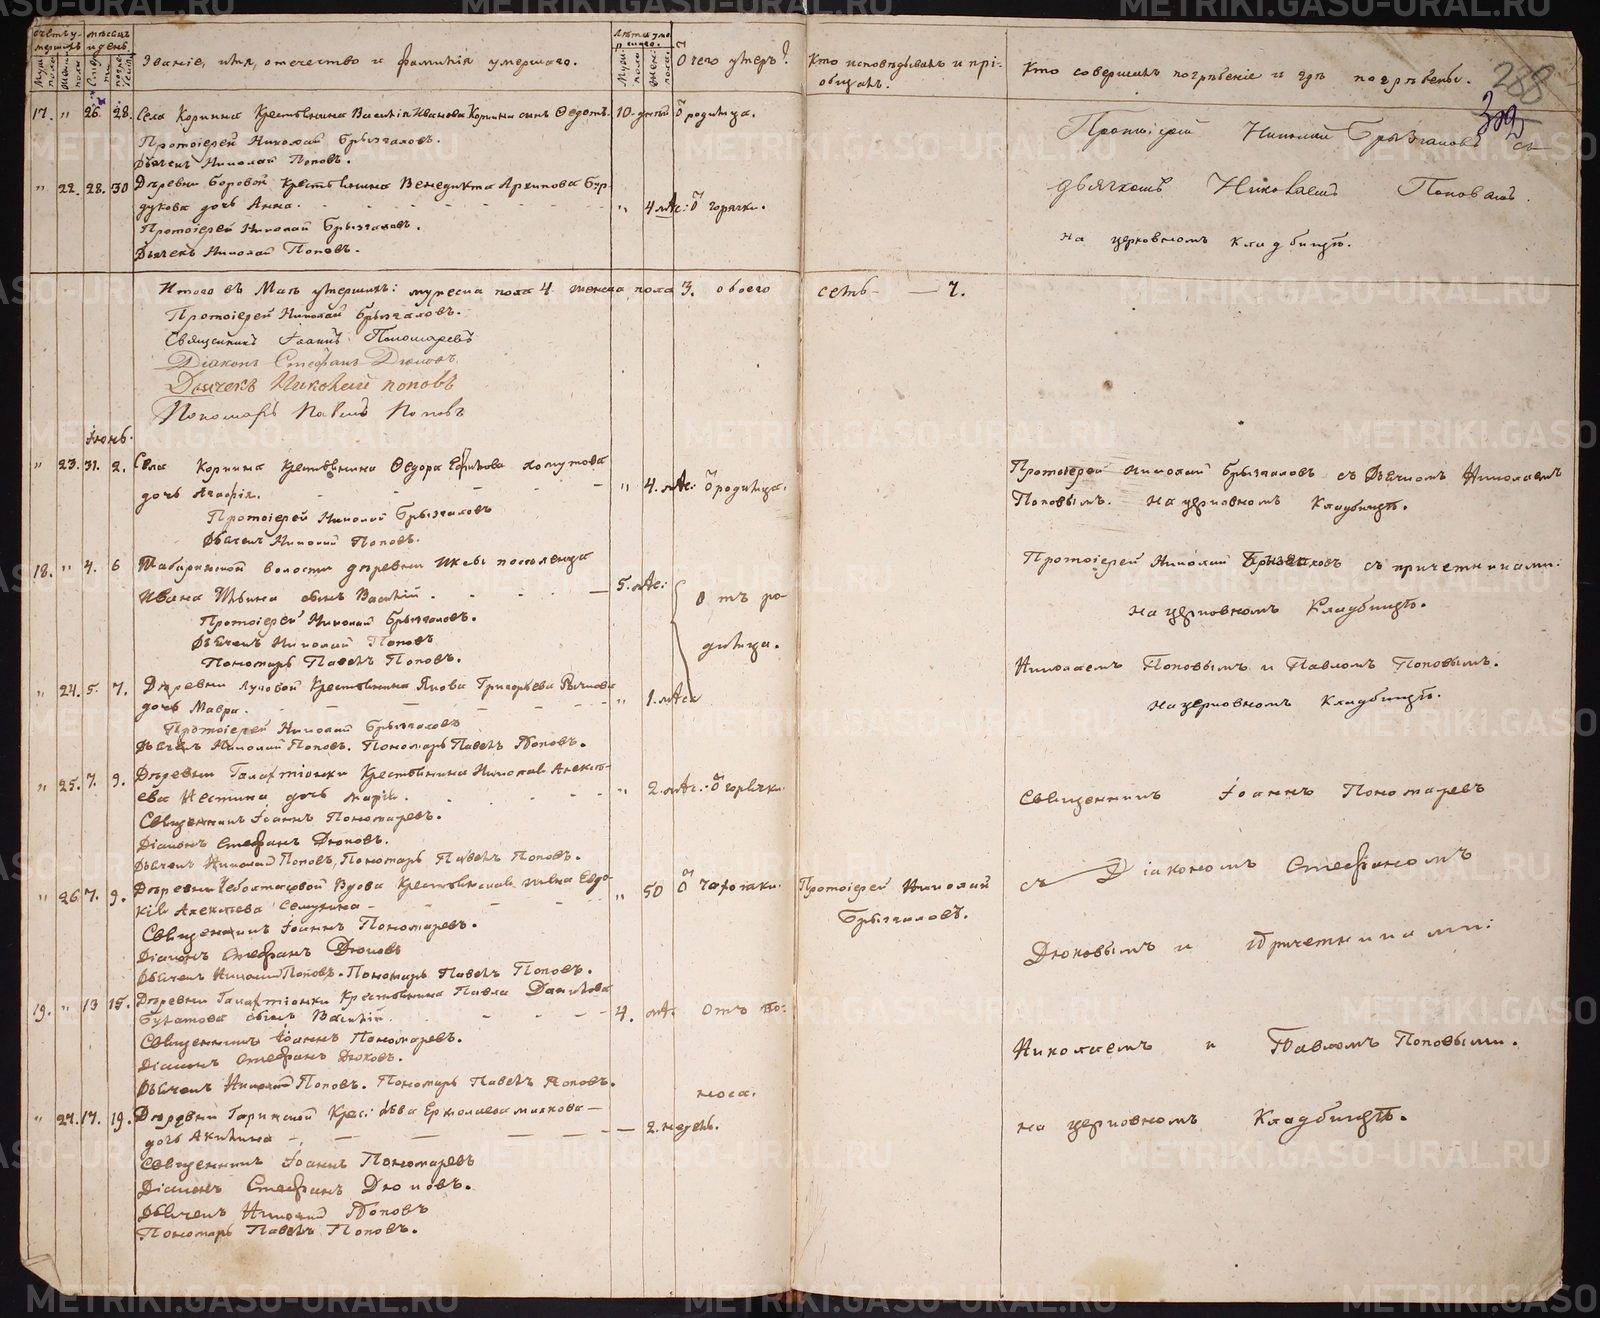 Счетъ умершихъ.
Мѣсяцъ и день.
Званіе, имя, отечество и фамилія умершаго.
Лѣта умершаго.
Отчего умеръ?
Кто исповѣдывалъ и пріобщалъ.
Кто совершалъ погребеніе и гдѣ погребены.
288
17. " 26. 28. Села Коркина Крестьянина Василія Иванова Коркина сынъ Ѳедотъ. 10. дней Ѿ родимца.
Протоіерей Николай Брызгаловъ.
Дьячекъ Николай Поповъ.
Протоіерей Николай Брызгаловъ съ
дьячкомъ Николаемъ Поповымъ.
на церковномъ кладбищѣ.
" 22. 28. 30 Деревни Боровой Крестьянина Венедикта Архипова
дочь Анна. " 4 мѣс: Ѿ горячки.
Протоіерей Николай Брызгаловъ.
Дьячекъ Николай Поповъ.
Итого въ Маѣ умершихъ: мужеска пола 4 женска пола 3. обоего семь — 7.
Протоіерей Николай Брызгаловъ.
Священникъ Іоаннъ Пономаревъ
Діаконъ Стефанъ Дюковъ.
Дьячекъ Николай Поповъ
Пономарь Павелъ Поповъ
Іюнь.
" 23. 31. 2. Села Коркина Крестьянина Ѳедора
дочь Агафія. " 4. мѣс: Ѿ родимца.
Протоіерей Николай Брызгаловъ
Дьячекъ Николай Поповъ.
Протоіерей Николай Брызгаловъ съ Дьячкомъ Николаемъ
Поповымъ. на церковномъ Кладбищѣ.
18. " 4. 6 Табаринской волости деревни поселенца
Ивана сынъ Василій. 5. мѣс: Отъ родимца.
Протоіерей Николай Брызгаловъ.
Дьячекъ Николай Поповъ
Пономарь Павелъ Поповъ.
Протоіерей Николай Брызгаловъ съ причетниками:
на церковномъ Кладбищѣ.
Николаемъ Поповымъ и Павломъ Поповымъ.
на церковномъ Кладбищѣ.
" 24. 5. 7. Деревни Луговой Крестьянина Якова Григорьева
дочь Мавра. " 1. мѣся
Протоіерей Николай Брызгаловъ
Дьячекъ Николай Поповъ. Пономарь Павелъ Поповъ.
" 25. 7. 9. Деревни Галактіонки Крестьянина Николая Алексѣева
дочь Марія. " 2. мѣс: Ѿ горячки.
Священникъ Іоаннъ Пономаревъ.
Діаконъ Стефанъ Дюковъ.
Дьячекъ Николай Поповъ. Пономарь Павелъ Поповъ.
Священникъ Іоаннъ Пономаревъ
съ Діакономъ Стефаномъ
Дюковымъ и Причетниками:
Николаемъ и Павломъ Поповыми.
на церковномъ Кладбищѣ.
" 26. 7. 9. Деревни Вдова Крестьянская жена Евдокія
Алексѣева " 50 Ѿ чахотки. Протоіерей Николай
Брызгаловъ.
Священникъ Іоаннъ Пономаревъ.
Діаконъ Стефанъ Дюковъ
Дьячекъ Николай Поповъ. Пономарь Павелъ Поповъ.
19. " 13 15. Деревни Галактіонки Крестьянина Павла Данилова
сынъ Василій. 4. мѣ. Отъ поноса.
Священникъ Іоаннъ Пономаревъ.
Діаконъ Стефанъ Дюковъ.
Дьячекъ Николай Поповъ. Пономарь Павелъ Поповъ.
" 27. 17. 19. Деревни Гаринской Крес: Ермолаева
дочь Акилина — 2. недѣль.
Священникъ Іоаннъ Пономаревъ
Діаконъ Стефанъ Дюковъ.
Дьячекъ Николай Поповъ
Пономарь Павелъ Поповъ.
METRIKI.GASO-URAL.RU